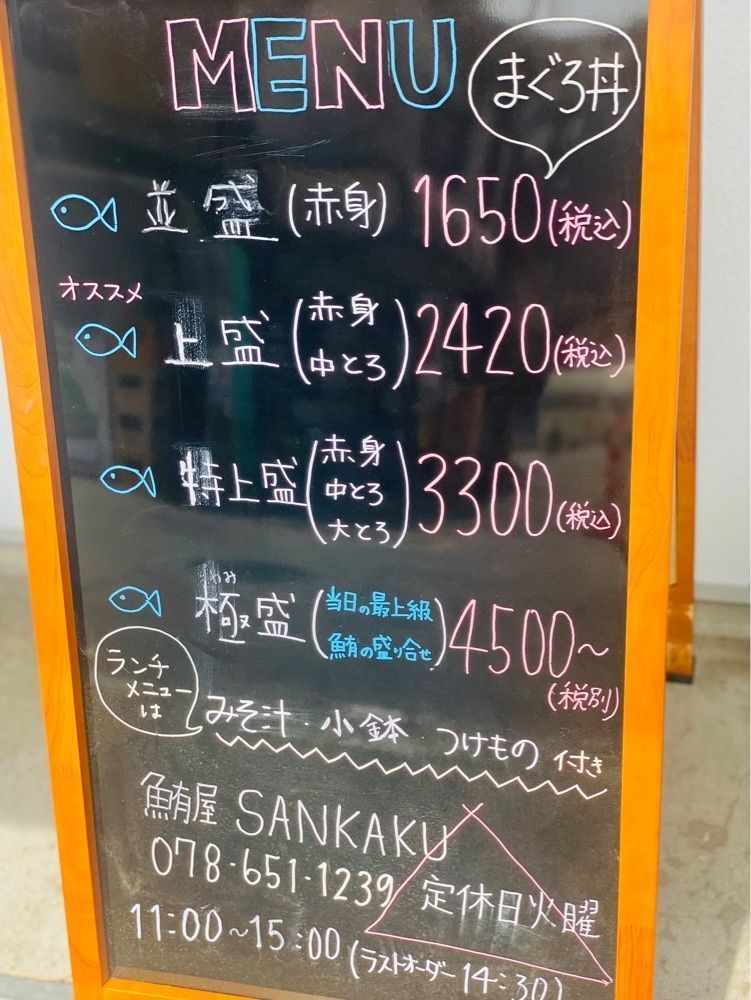 MENU
まぐろ丼
並盛(赤身)1650(税込)
オススメ
上盛(赤身 中とろ)2420(税込)
特上盛(赤身 中とろ 大とろ)3300(税込)
きわみ
極盛(当日の最上級 鮪の盛り合せ)4500~
(税別)
ランチ
メニュー
は
みそ汁・小鉢 つけもの 付き
鮪屋 SANKAKU
078-651-1239
定休日火曜
11:00~15:00(ラストオーダー14:30)